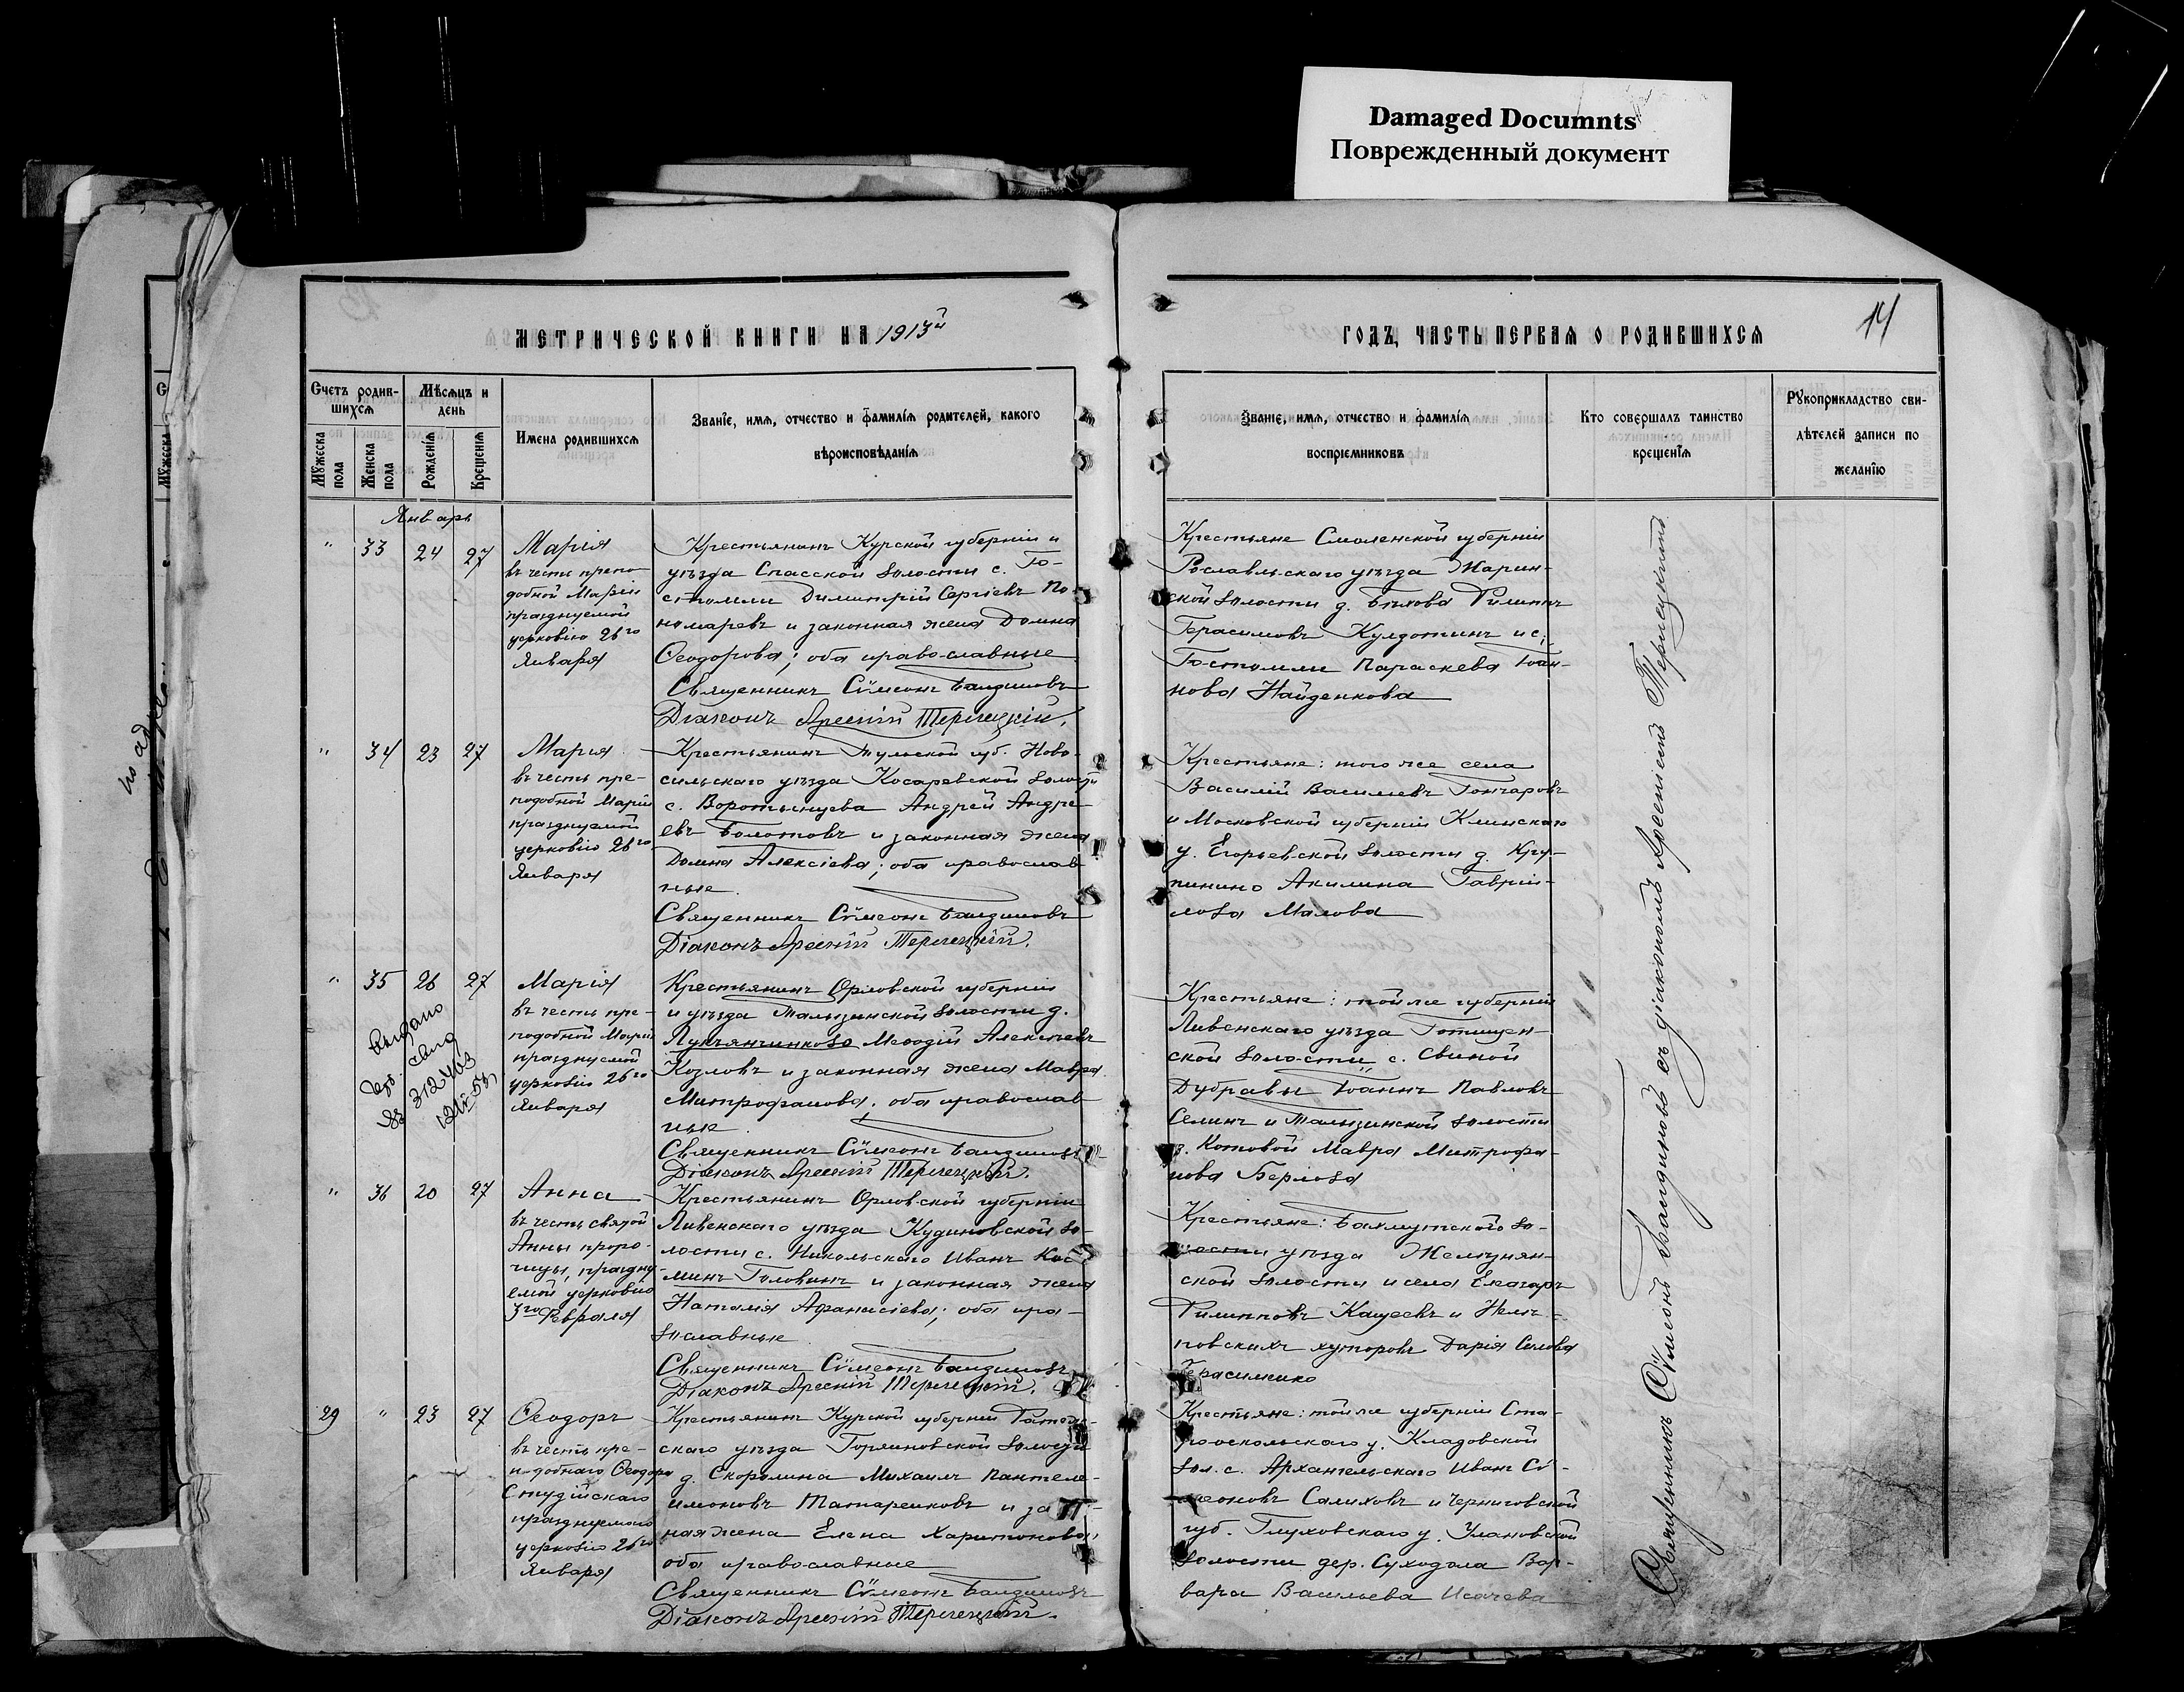 Damaged Documnts
Поврежденный документ
МЕТРИЧЕСКОЙ КНИГИ НА 1913й
ГОДЪ, ЧАСТЬ ПЕРВАЯ О РОДИВШИХСЯ
14
Счетъ родив-
шихся
Мѣсяцъ и
день
Мужеска
пола
Женска
пола
Рожденія
Крещенія
Имена родившихся
Званіе, имя, отчество и фамилія родителей, какого
вѣроисповѣданія
Званіе, имя, отчество и фамилія
воспріемниковъ
Кто совершалъ таинство
крещенія
Рукоприкладство сви-
дѣтелей записи по
желанію
Январь
" 33 24 27
Марія
въ честь препо-
добной Маріи
празднуемой
церковію 26го
Января
Крестьянинъ Курской губерніи и
уѣзда Спасской волости с. Го-
стомли Димитрій Сергіевъ По-
номаревъ и законная жена Домна
Ѳеодорова; оба православные
Священникъ Сѵмеонъ Балдиновъ
Діаконъ Арсеній Терлецкій.
Крестьяне Смоленской губерніи
Рославльскаго уѣзда Жарин-
ской волости д. Бѣхова Филиппъ
Герасимовъ и с.
Гостомли Параскева Іоан-
нова Найденкова
" 34 23 27
Марія
въ честь пре-
подобной Маріи
празднуемой
церковію 26го
Января
Крестьянинъ Тульской губ. Ново-
сильскаго уѣзда Косаревской волости
с. Воротынцева Андрей Андре-
евъ Болотовъ и законная жена
Домна Алексіева; оба православ
ные.
Священникъ Сѵмеонъ Балдиновъ
Діаконъ Арсеній Терлецкій.
Крестьяне: того же села
Василій Василіевъ Гончаровъ
и Московской губерніи Клинскаго
у. Егорьевской волости д. Кру-
пинино Акилина Гавріи-
лова Малова
" 35 26 27
Марія
въ честь пре-
подобной Маріи
празднуемой
церковію 26го
Января
Выдано
312463
Крестьянинъ Орловской губерніи
и уѣзда Талызинской волости д.
Лукьянчиково Меѳодій Алексѣевъ
Козловъ и законная жена Мавра
Митрофанова; оба православ
ные.
Священникъ Сѵмеонъ Балдиновъ
Діаконъ Арсеній Терлецкій.
Крестьяне: той же губерніи
Ливенскаго уѣзда
ской волости с. Свиной
Дубравы Іоаннъ Павловъ
Селинъ и Талызинской волости
Котовой Мавра Митрофа-
нова Берлова
" 36 20 27
Анна
въ честь святой
Анны проро-
чицы, праздну-
емой церковію
3го Февраля
Крестьянинъ Орловской губерніи
Ливенскаго уѣзда Кудиновской во-
лости с. Никольскаго Иванъ Кос-
минъ Головинъ и законная жена
Наталія Аѳанасіева; оба пра-
вославные
Священникъ Сѵмеонъ Балдиновъ
Діаконъ Арсеній Терлецкій.
Крестьяне: Бахмутскаго во-
лости уѣзда Желѣзнян-
ской волости и села Елеазаръ
Филипповъ Кащеевъ и Нелѣ-
повскихъ хуторовъ Дарія Силова
Герасименко
29 " 23 27
Ѳеодоръ
въ честь пре-
подобнаго Ѳеодора
Студійскаго
празднуемаго
церковію 26го
Января
Крестьянинъ Курской губерніи Тим-
скаго уѣзда Горяиновской волости
д. Скоролина Михаилъ Пантеле-
имоновъ Татаренковъ и закон-
ная жена Елена Харитонова;
оба православные
Священникъ Сѵмеонъ Балдиновъ
Діаконъ Арсеній Терлецкій.
Крестьяне: той же губерніи Ста-
рооскольскаго у. Кладовской
вол. с. Архангельскаго Иванъ Сѵ-
меоновъ Салиховъ и Черниговской
губ. Глуховскаго у. Улановской
волости дер. Суходола Вар-
вара Васильева Исачева
Священникъ Сѵмеонъ Балдиновъ съ діакономъ Арсеніемъ Терлецкимъ